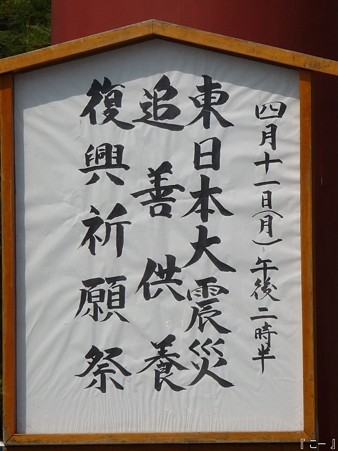 四月十一日(月)午後二時半
東日本大震災
追善供養
復興祈願祭
『こー』